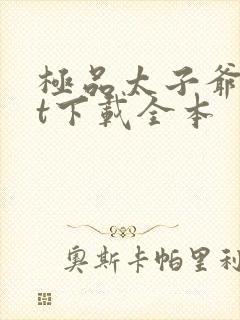 極品太子爺
t下載全本
奧斯卡帕里